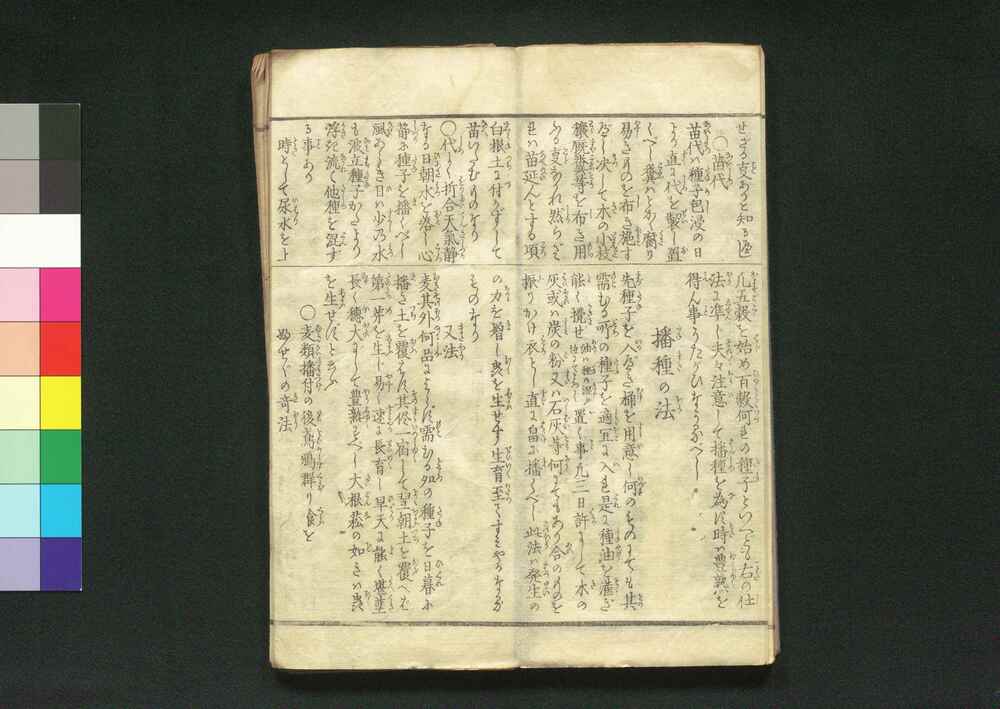 せざる事ありと知る可
○苗代
苗代ハ種子色浸の日
より直に代を製し置
くべし 糞ハよく腐り
易きものを布き施す
べし 決して木の小枝
穰厩糞等を布き用
ゐる事なかれ 然らざ
れハ苗延んとする頃
白根土に付かずして
苗いたむものなり
○代よく折合天氣静
なる日朝水を落し心
静に種子を播くべし
風あるとき日ハ少乃水
も波立種子かたより
浮き流て他種を混ず
る事あり
時として尿水を上
凡五穀を始め百穀何色の種子といへども右の仕
法に準し夫々注意して播種を為バ時の豊熟を
得ん事うたがひなかるべし
播種の法
先種子を入るべき桶を用意し何のものにても其
需むる所の種子を適宜に入れ是に種油を灌ぎ
能く攪せ 置く事凡三日許にして水の
灰或ハ炭の粉又ハ石灰等何にてもあり合のものを
振りかけ衣として直に畠に播くべし 此法ハ発生の
の力を増し虫を生ぜす生育至てすミやかなる
ものなり
又法
麦其外何品によらバ需むる処の種子を日暮に
播き土を覆ハず其侭一宿して翌朝土を覆へバ
第一芽を生し易く速に長育し旱天に能く堪莖
長く穂大にして豊熟すべし 大根菘の如きハ虫
を生ぜバといふ
○麦類播付の後鳥鴉群り食を
ふせぐの奇法